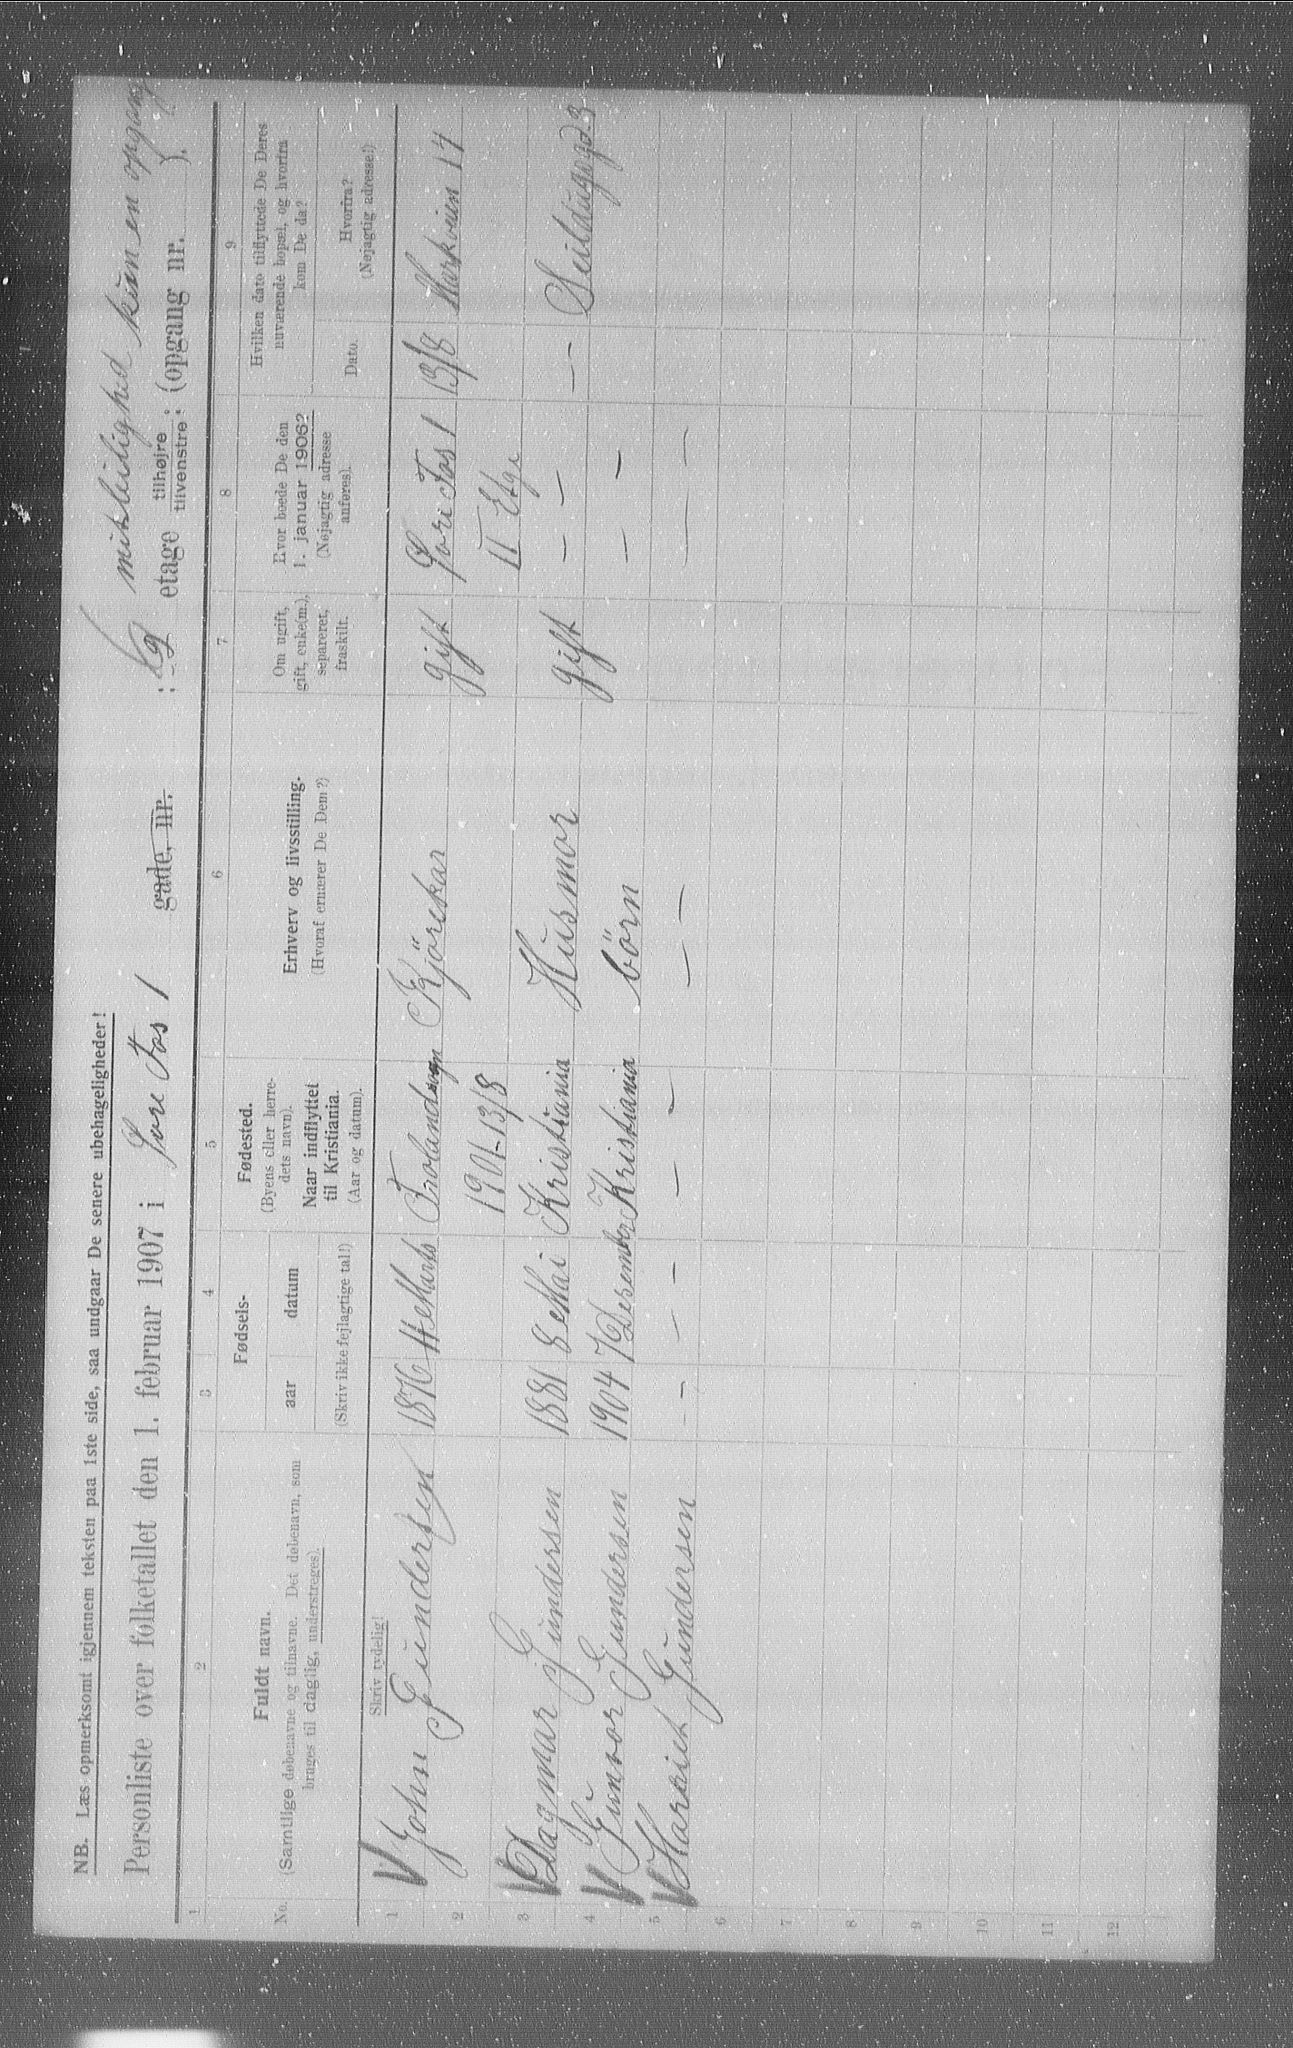 NB. Læs opmerksomt igjennem teksten paa 1ste side, saa undgaar De senere ubehageligheder!
Personliste over folketallet den 1. februar 1907 i Sore Fos 1 gade, nr. : 2 etage tilhøjre tilvenstre (opgang nr. ).
kun en opgang
1 2 3 4 5 6 7 8 9
No.
Fuldt navn.
(Samtlige døbenavne og tilnavne. Det døbenavn, som
bruges til daglig, understreges).
Skriv tydelig!
Fødsels-
aar datum
(Skriv ikke fejlagtige tal!)
Fødested.
(Byens eller herre-
dets navn).
Naar indflyttet
til Kristiania.
(Aar og datum).
Erhverv og livsstilling.
(Hvoraf ernærer De Dem?)
Om ugift,
gift, enke(m.),
separeret,
fraskilt.
Hvor boede De den
1. januar 1906?
(Nøjagtig adresse
anføres).
Hvilken dato tilflyttede De Deres
nuværende bopæl, og hvorfra
kom De da?
Dato.
Hvorfra?
(Nøjagtig adresse!)
1 John Gundersen 1876 Marts Froland Kjörekar gift Sore Fos 1 13/8 Markveien 14
2 1901-13/8 II Etge
3 Dagmar Gunderssen 1881 8 Mai Kristiania Husmor gift — — — Seildugsgd 3
4 Gunvor Gundersen 1904 7 Desember Kristiania börn — —
5 Harriet Gundersen — — — — — — — — —
6
7
8
9
10
11
12